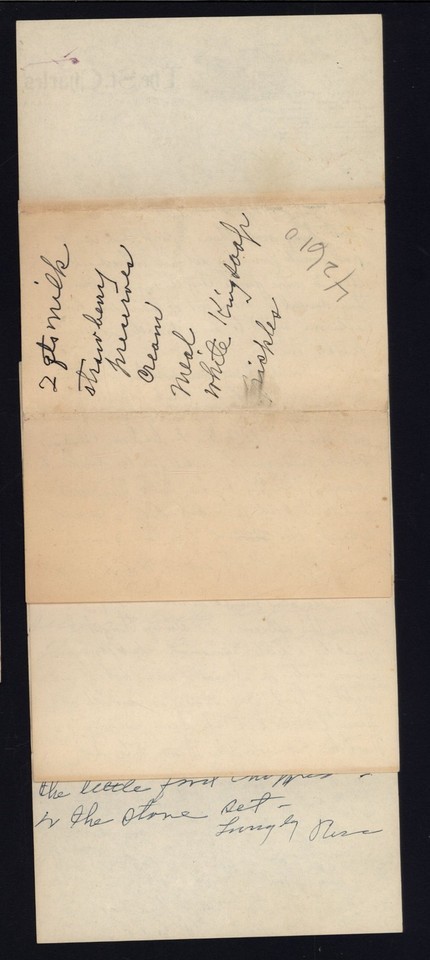 2 qts milk
strawberry
preserves
Cream
Meal
White King soap
42610
the little food chopper
in the stone set -
Lovingly Rosa